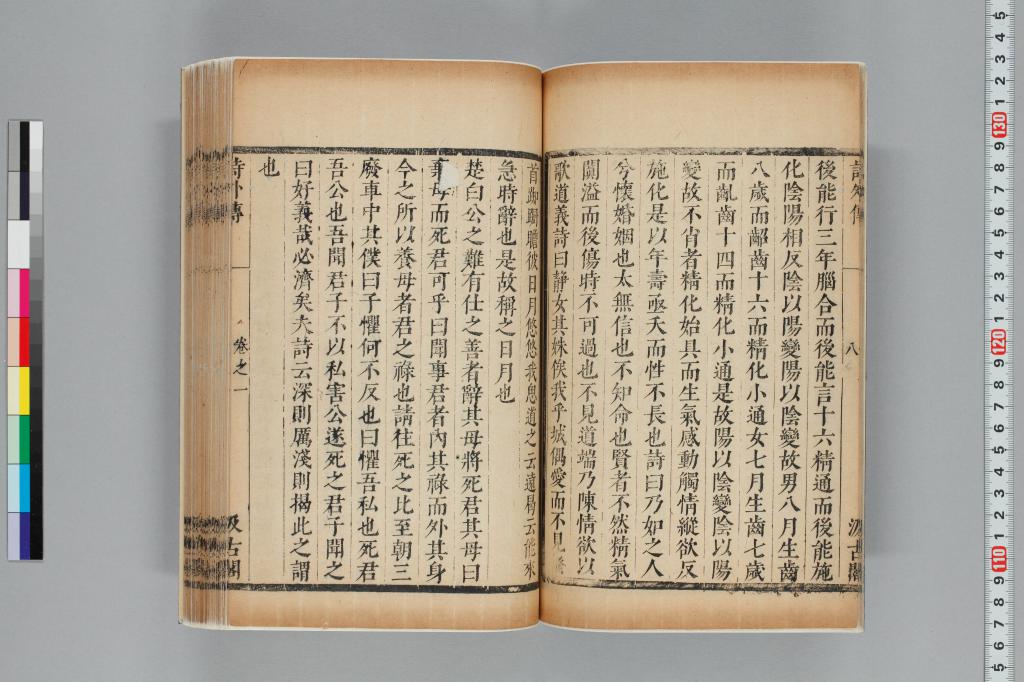 詩外傳
八
汲古閣
後能行三年腦合而後能言十六精通而後能施
化陰陽相反陰以陽變陽以陰變故男八月生齒
八歲而齠齒十六而精化小通女七月生齒七歲
而齔齒十四而精化小通是故陽以陰變陰以陽
變故不肖者精化始具而生氣感動觸情縱欲反
施化是以年壽亟夭而性不長也詩曰乃如之人
兮懷婚姻也太無信也不知命也賢者不然精氣
闐溢而後傷時不可過也不見道端乃陳情欲以
歌道義詩曰靜女其姝俟我乎城偶愛而不見搔
首踟躕瞻彼日月悠悠我思道之云遠曷云能來
急時辭也是故稱之日月也
楚白公之難有仕之善者辭其母將死君其母曰
棄母而死君可乎曰聞事君者內其祿而外其身
今之所以養母者君之祿也請往死之比至朝三
廢車中其僕曰子懼何不反也曰懼吾私也死君
吾公也吾聞君子不以私害公遂死之君子聞之
曰好義哉必濟矣夫詩云深則厲淺則揭此之謂
也
詩外傳
卷之一
汲古閣
5
4
3
2
1
130
9
8
7
6
5
4
3
2
1
120
9
8
7
6
5
4
3
2
1
110
9
8
7
6
5